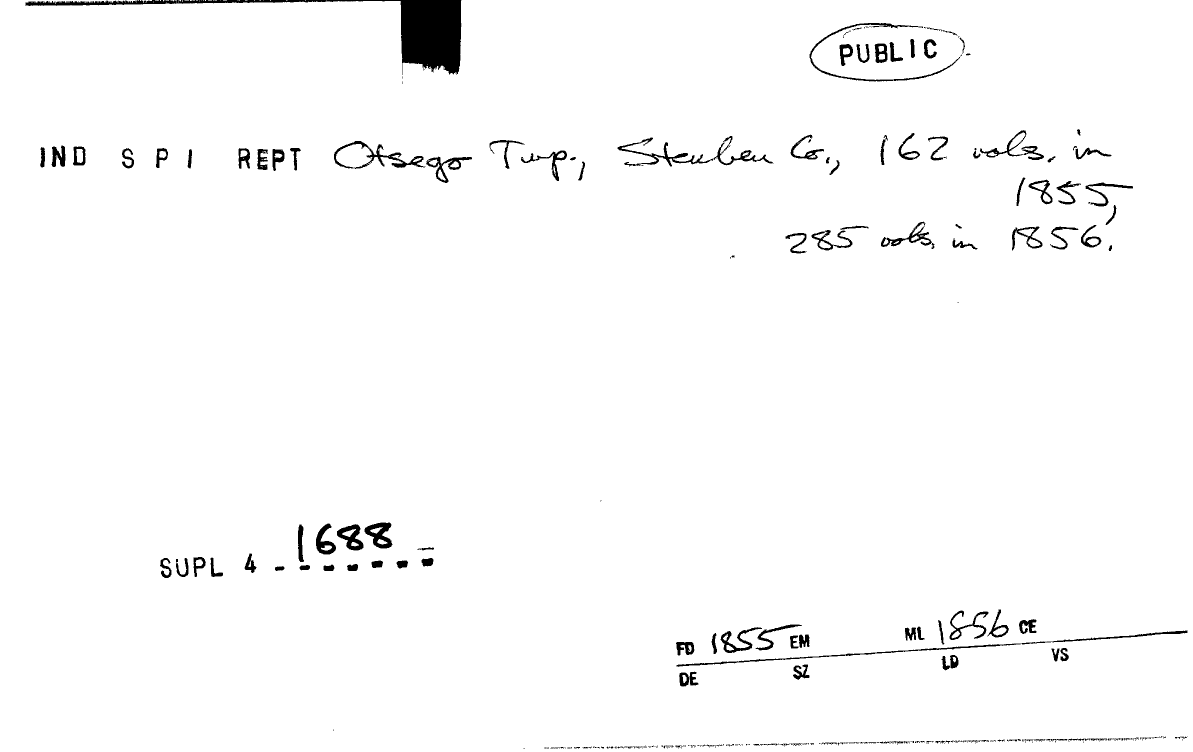 PUBLIC
IND S P I REPT Otsego Twp., Steuben Co., 162 vols. in
1855,
285 vols. in 1856.
SUPL 4 - 1688 -
FD 1855 EM ML 1856 CE
DE SZ LD VS